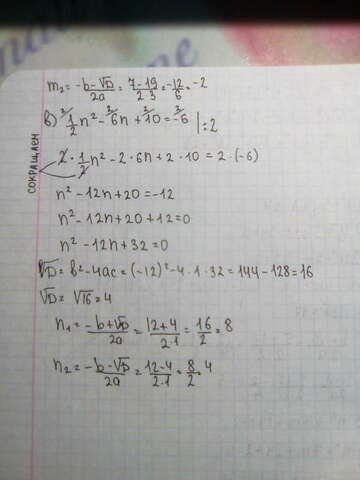 m₂ = -b-√D/2a = 7-19/2·3 = -12/6 = -2
в) 1/2 n² - 6n + 10 = -6 |:2
2 · 1/2 n² - 2·6n + 2·10 = 2·(-6)
СОКРАЩАЕМ
n² - 12n + 20 = -12
n² - 12n + 20 + 12 = 0
n² - 12n + 32 = 0
√D = b² - 4ac = (-12)² - 4·1·32 = 144 - 128 = 16
√D = √16 = 4
n₁ = -b+√D/2a = 12+4/2·1 = 16/2 = 8
n₂ = -b-√D/2a = 12-4/2·1 = 8/2 = 4